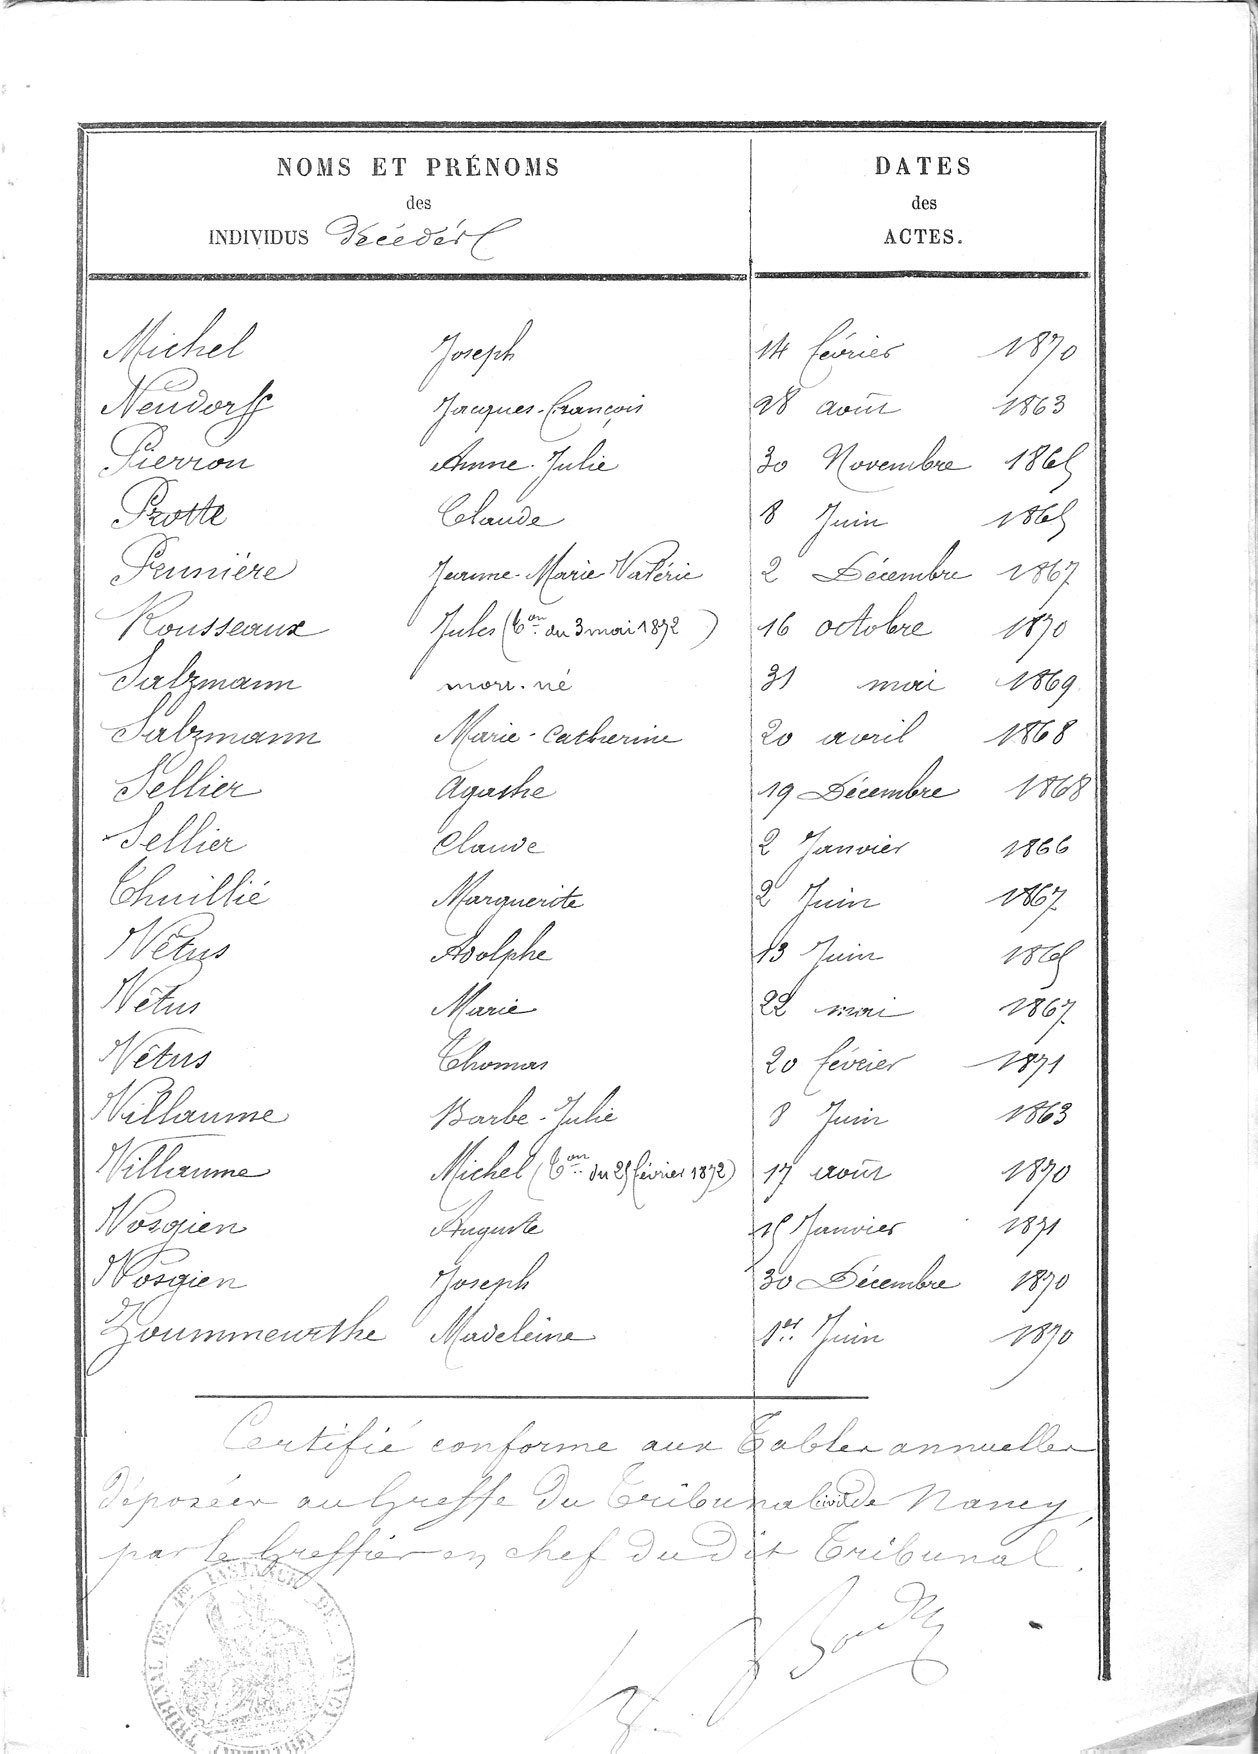 NOMS ET PRÉNOMS
des
INDIVIDUS Décédés
DATES
des
ACTES.
Michel Joseph 14 février 1870
Neudorff Jacques-François 28 août 1863
Pierron Anne-Julie 30 Novembre 1865
Protte Claude 8 Juin 1865
Prunière Jeanne-Marie Valérie 2 Décembre 1867
Rousseaux Jules (Con du 3 mai 1872) 16 octobre 1870
Salzmann mort-né 31 mai 1869
Salzmann Marie-Catherine 20 avril 1868
Sellier Agathe 19 Décembre 1868
Sellier Claude 2 Janvier 1866
Thuillié Marguerite 2 Juin 1867
Vêtus Adolphe 13 Juin 1865
Vêtus Marie 22 mai 1867
Vêtus Thomas 20 février 1871
Villaume Barbe-Julie 8 Juin 1863
Villaume Michel (Con du 25 février 1872) 17 août 1870
Vosgien Auguste 15 Janvier 1871
Vosgien Joseph 30 Décembre 1870
Zoummeurthe Madeleine 1er Juin 1870
Certifié conforme aux Tables annuelles
déposées au Greffe du Tribunal civil de Nancy,
par le Greffier en chef du dit Tribunal.
TRIBUNAL DE 1RE INSTANCE DE NANCY